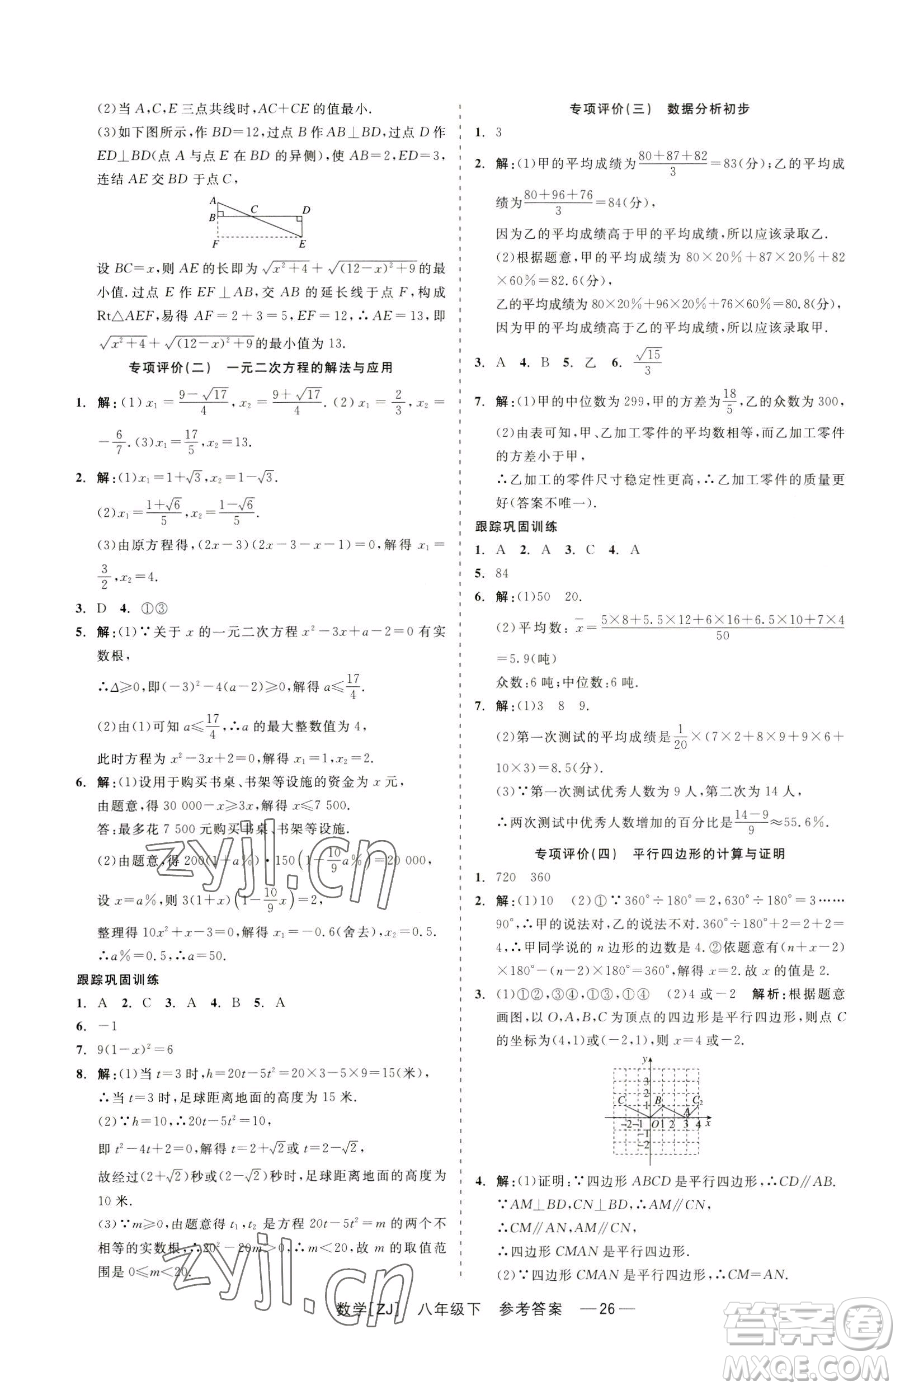 (2)当 A,C,E 三点共线时,AC+CE 的值最小.
(3)如下图所示,作 BD=12,过点 B 作 AB⊥BD,过点 D 作
ED⊥BD(点 A 与点 E 在 BD 的异侧),使 AB=2,ED=3,
连结 AE 交 BD 于点 C,
A
B C D
F E
设 BC=x,则 AE 的长即为√(x²+4)+√((12-x)²+9)的最
小值.过点 E 作 EF⊥AB,交 AB 的延长线于点 F,构成
Rt△AEF,易得 AF=2+3=5,EF=12,∴AE=13,即
√(x²+4)+√((12-x)²+9)的最小值为 13.
专项评价(二) 一元二次方程的解法与应用
1. 解:(1)x₁=(9-√17)/4,x₂=(9+√17)/4.(2)x₁=2/3,x₂=
-6/7.(3)x₁=17/5,x₂=13.
2. 解:(1)x₁=1+√3,x₂=1-√3.
(2)x₁=(1+√6)/5,x₂=(1-√6)/5.
(3)由原方程得,(2x-3)(2x-3-x-1)=0,解得 x₁=
3/2,x₂=4.
3. D 4. ①③
5. 解:(1)∵关于 x 的一元二次方程 x²-3x+a-2=0 有实
数根,
∴Δ≥0,即(-3)²-4(a-2)≥0,解得 a≤17/4.
(2)由(1)可知 a≤17/4,∴a 的最大整数值为 4,
此时方程为 x²-3x+2=0,解得 x=1 或 x=2.
6. 解:(1)设用于购买书桌、书架等设施的资金为 x 元,
由题意,得 30 000-x≥3x,解得 x≤7 500.
答:最多花 7 500 元购买书桌、书架等设施.
(2)由题意,得 200(1+a%)·150(1-10/9 a%)=20 000,
设 x=a%,则 3(1+x)(1-10/9 x)=2,
整理得 10x²+x-3=0,解得 x₁=-0.6(舍去),x₂=0.5.
∴a%=0.5,∴a=50.
跟踪巩固训练
1. A 2. C 3. A 4. B 5. A
6. -1
7. 9(1-x)²=6
8. 解:(1)当 t=3 时,h=20t-5t²=20×3-5×9=15(米),
∴当 t=3 时,足球距离地面的高度为 15 米.
(2)∵h=10,∴20t-5t²=10,
即 t²-4t+2=0,解得 t=2+√2或 t=2-√2,
故经过(2+√2)秒或(2-√2)秒时,足球距离地面的高度为
10 米.
(3)∵m≥0,由题意得 t₁,t₂ 是方程 20t-5t²=m 的两个不
相等的实数根,∴20²-20m>0,∴m<20,故 m 的取值范
围是 0≤m<20.
专项评价(三) 数据分析初步
1. 3
2. 解:(1)甲的平均成绩为(80+87+82)/3=83(分);乙的平均成
绩为(80+96+76)/3=84(分),
因为乙的平均成绩高于甲的平均成绩,所以应该录取乙.
(2)根据题意,甲的平均成绩为 80×20%+87×20%+82
×60%=82.6(分),
乙的平均成绩为 80×20%+96×20%+76×60%=80.8(分),
因为甲的平均成绩高于乙的平均成绩,所以应该录取甲.
3. A 4. B 5. 乙 6. √15/3
7. 解:(1)甲的中位数为 299,甲的方差为18/5,乙的众数为 300,
(2)由表可知,甲、乙加工零件的平均数相等,而乙加工零件
的方差小于甲,
∴乙加工的零件尺寸稳定性更高,∴乙加工的零件的质量更
好(答案不唯一).
跟踪巩固训练
1. A 2. A 3. C 4. A
5. 84
6. 解:(1)50 20.
(2)平均数:x̄=(5×8+5.5×12+6×16+6.5×10+7×4)/50
=5.9(吨)
众数:6 吨;中位数:6 吨.
7. 解:(1)3 8 9.
(2)第一次测试的平均成绩是1/20×(7×2+8×9+9×6+
10×3)=8.5(分).
(3)∵第一次测试优秀人数为 9 人,第二次为 14 人,
∴两次测试中优秀人数增加的百分比是(14-9)/9≈55.6%.
专项评价(四) 平行四边形的计算与证明
1. 720 360
2. 解:(1)10 (2)①∵360°÷180°=2,630°÷180°=3……
90°,∴甲的说法对,乙的说法不对.360°÷180°+2=2+2=
4,∴甲同学说的 n 边形的边数是 4.②根据题意,得(n+x-2)
×180°-(n-2)×180°=360°,解得 x=2.
3. (1)①②,③④,①③,②④ (2)4 或-2 解析:根据题意
画图,以 O,A,B,C 为顶点的四边形是平行四边形,则点 C
的坐标为(4,1)或(-2,1),所以 x=4 或-2.
y
3
2
C 1 B C₂
-2 -1 O 1 2 3 4 x
A
-1
-2
4. 解:(1)证明:∵四边形 ABCD 是平行四边形,∴CD∥AB.
∵AM⊥BD,CN⊥BD,∴AM∥CN,
∴CM∥AN,AM∥CN,
∴四边形 CMAN 是平行四边形.
(2)∵四边形 CMAN 是平行四边形,∴CM=AN.
数学[ZJ] 八年级下 参考答案 —26—
zyjl.cn
zyjl.cn
答案圈
MXQE.COM